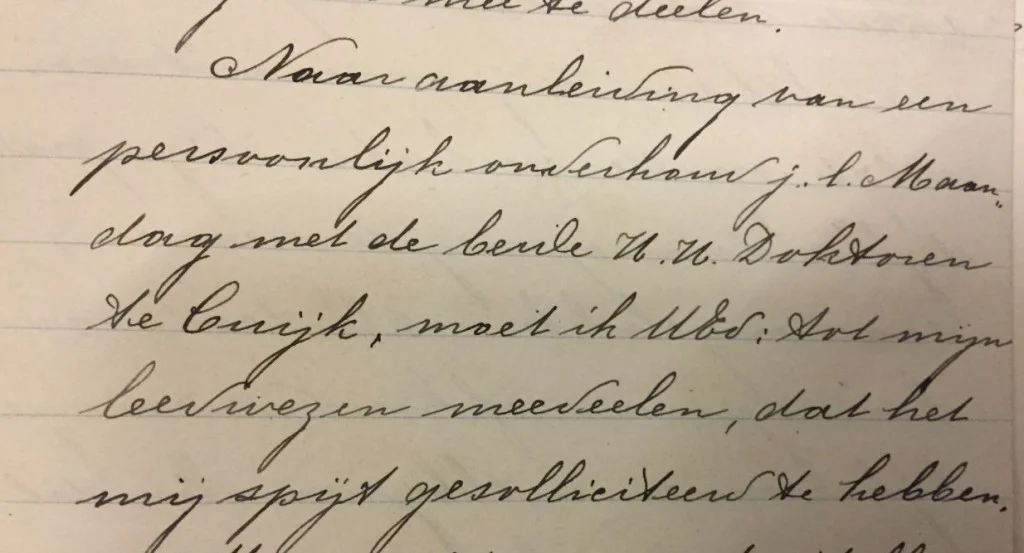 mee te deelen.
Naar aanleiding van een
persoonlijk onderhoud j.l. Maan-
dag met de beide H.H. Doktoren
te Cuijk, moet ik UEd: tot mijn
leedwezen meedeelen, dat het
mij spijt gesolliciteerd te hebben.